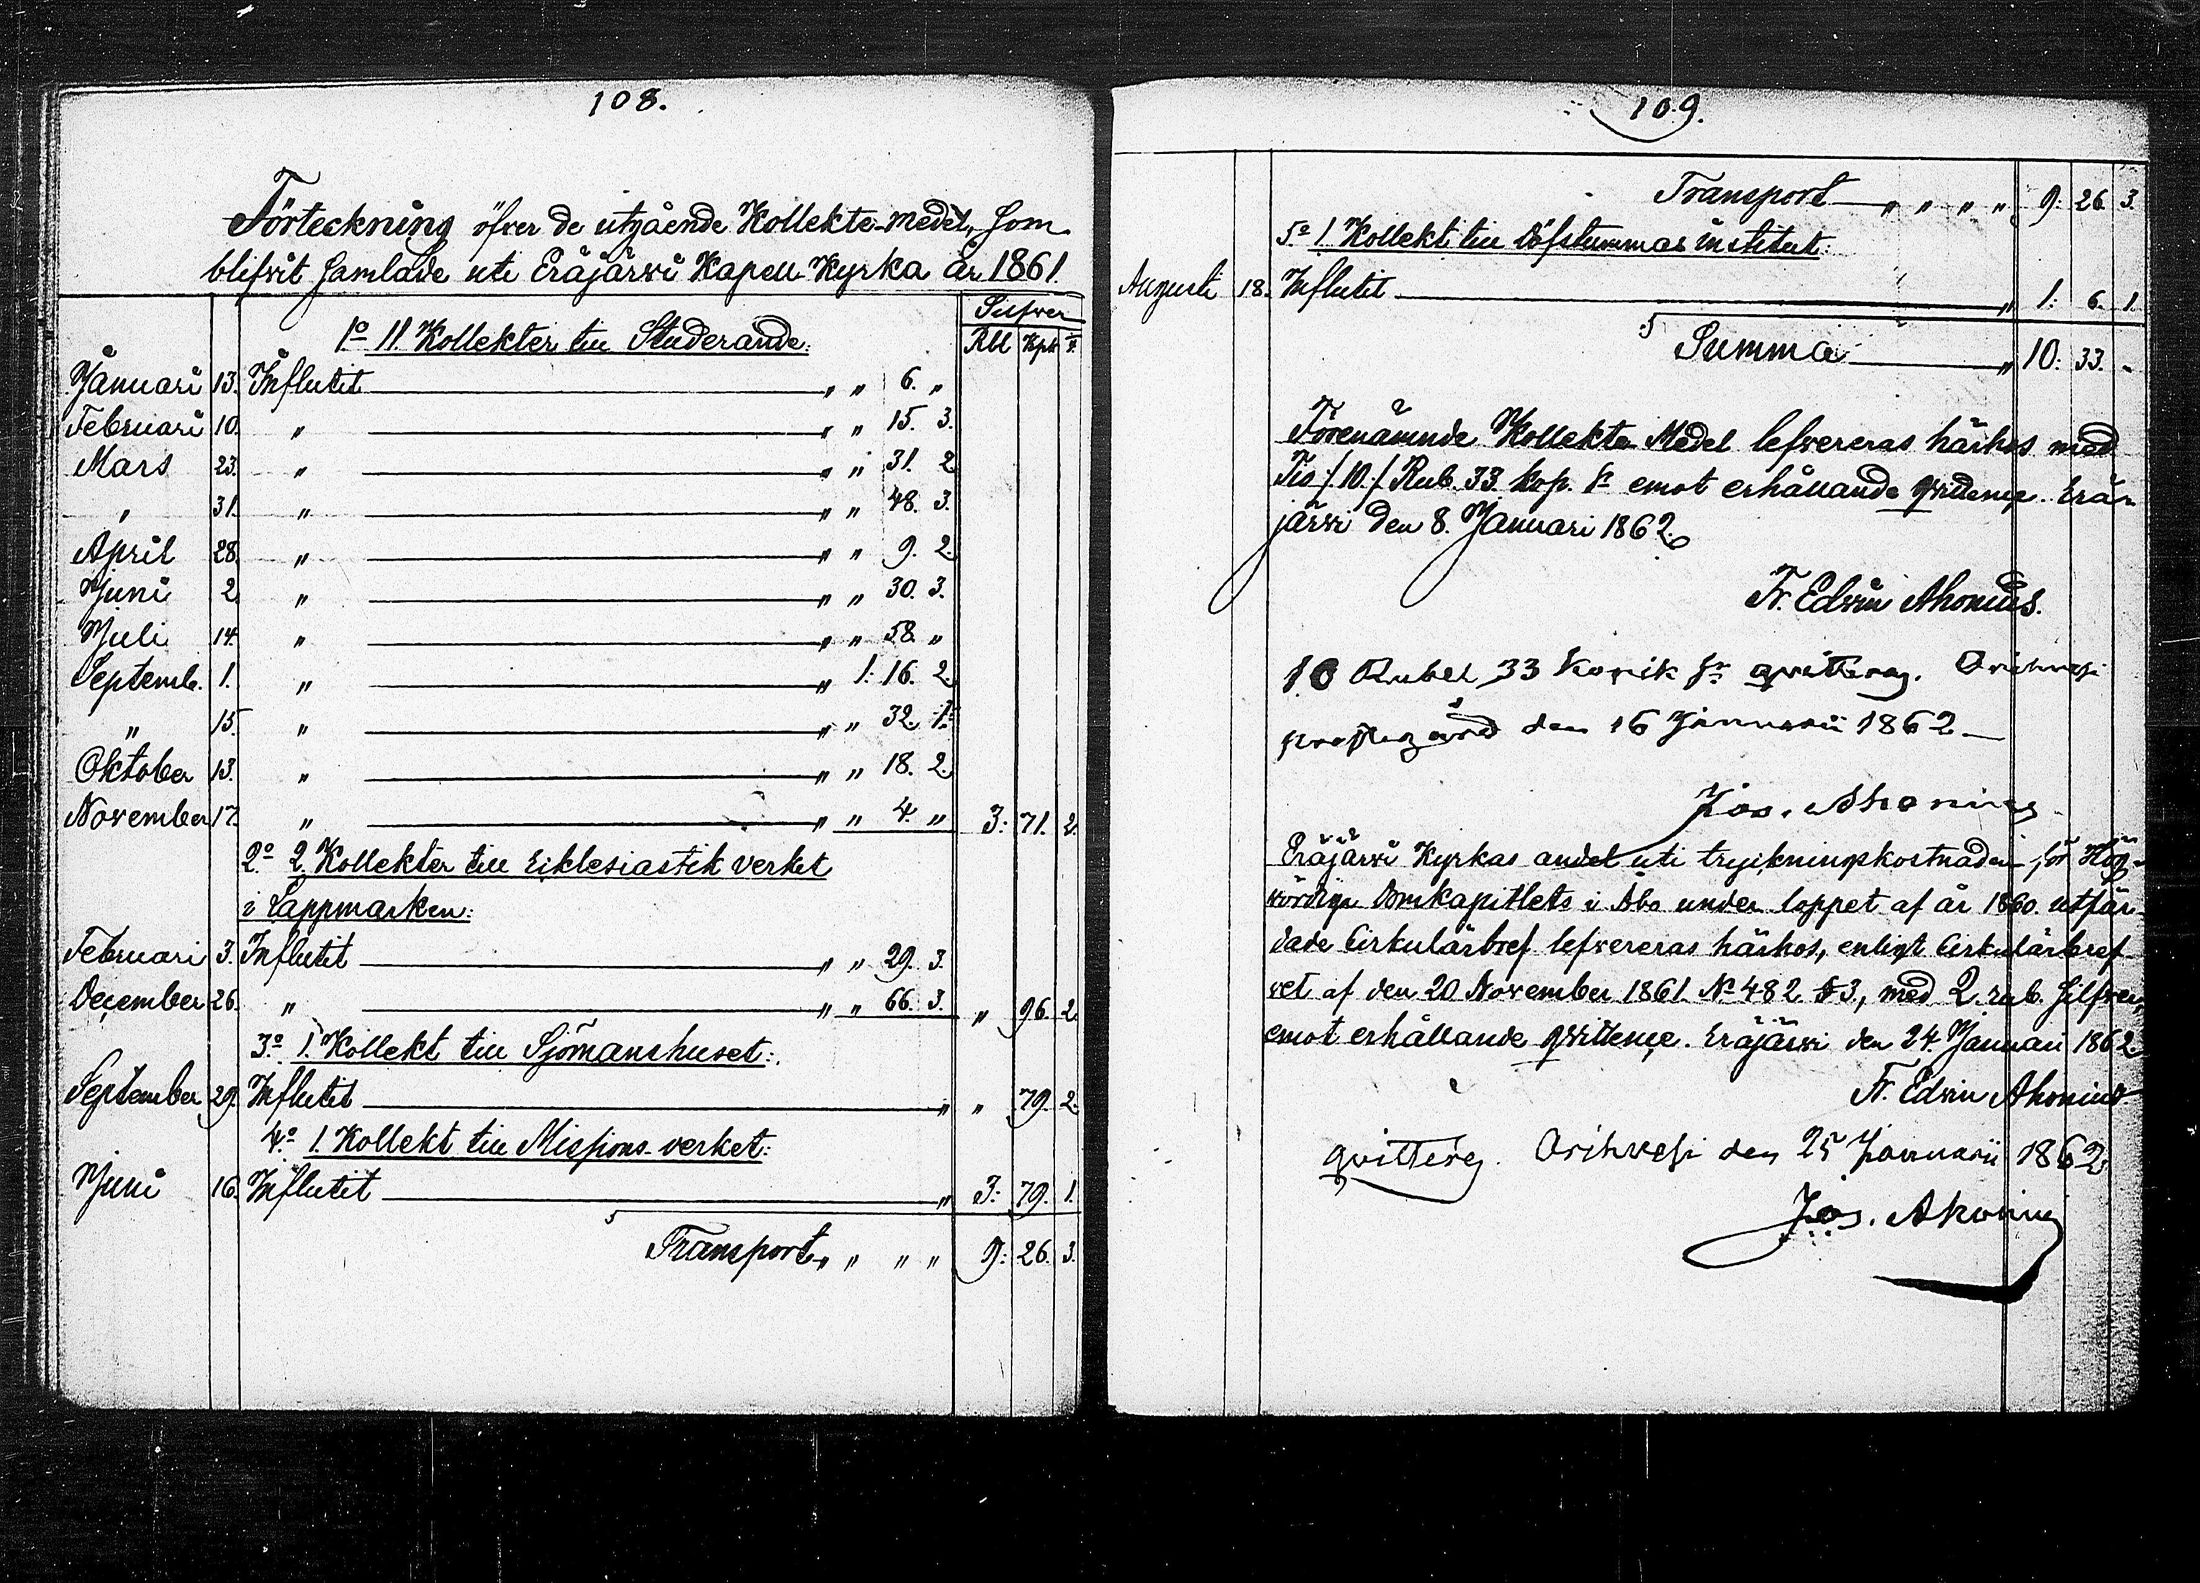 108.
Förteckning öfver de utgående Kollekte-medel, som
blifvit samlade uti Eräjärvi Kapell Kyrka år 1861.
Silfver
1º 11. Kollekter till Studerande: Rbl Kpk
Januari 13. Influtit " " 6. "
Februari 10. " " " 15. 3.
Mars 23. " " " 31. 2.
" 31. " " " 48. 3.
April 28. " " " 9. 2.
Juni 2. " " " 30. 3.
Juli 14. " " " 58. "
Septemb. 1. " " 1: 16. 2.
" 15. " " " 32. 1.
Oktober 13. " " " 18. 2.
November 17. " " " 4. " 3: 71. 2.
2º 2 Kollekter till Eiklesiastik verket
i Lappmarken:
Februari 3. Influtit " " 29. 3.
December 26. " " " 66. 3. " 96. 2.
3º 1. Kollekt till Sjömanshuset:
September 29. Influtit " " 79. 2.
4º 1. Kollekt till Missions-verket:
Juni 16. Influtit " 3: 79. 1.
Transport " " " " 9: 26. 3.
109.
Transport " " " " 9: 26. 3.
5º 1 Kollekt till Döfstummas institut:
Augusti 18. Influtit " 1: 6. 1.
Summa " 10: 33. -
Förenämnde Kollekte Medel lefvereras härhos med
Tio /.10./. Rub. 33. kop. Sr emot erhållande qvittence. Erä-
järvi den 8. Januari 1862.
Fr. Edvin Ahonius.
10 Rubel 33 kopek Sr qvitteras. Orihvesi
prostegård den 16 Januarii 1862 —
Jos. Ahonius
Eräjärvi Kyrkas andel uti tryckningskostnaden för Hög-
vördiga Domkapitlets i Åbo under loppet af år 1860 utfär-
dade Cirkulärbref lefvereras härhos, enligt Cirkulärbref-
vet af den 20 November 1861 Nº 482 § 3, med 2. rub. Silfver,
emot erhållande qvittence. Eräjärvi den 24. Januari 1862.
Fr. Edvin Ahonius
qvitteras. Orihvesi den 25 Januarii 1862
Jos. Ahonius